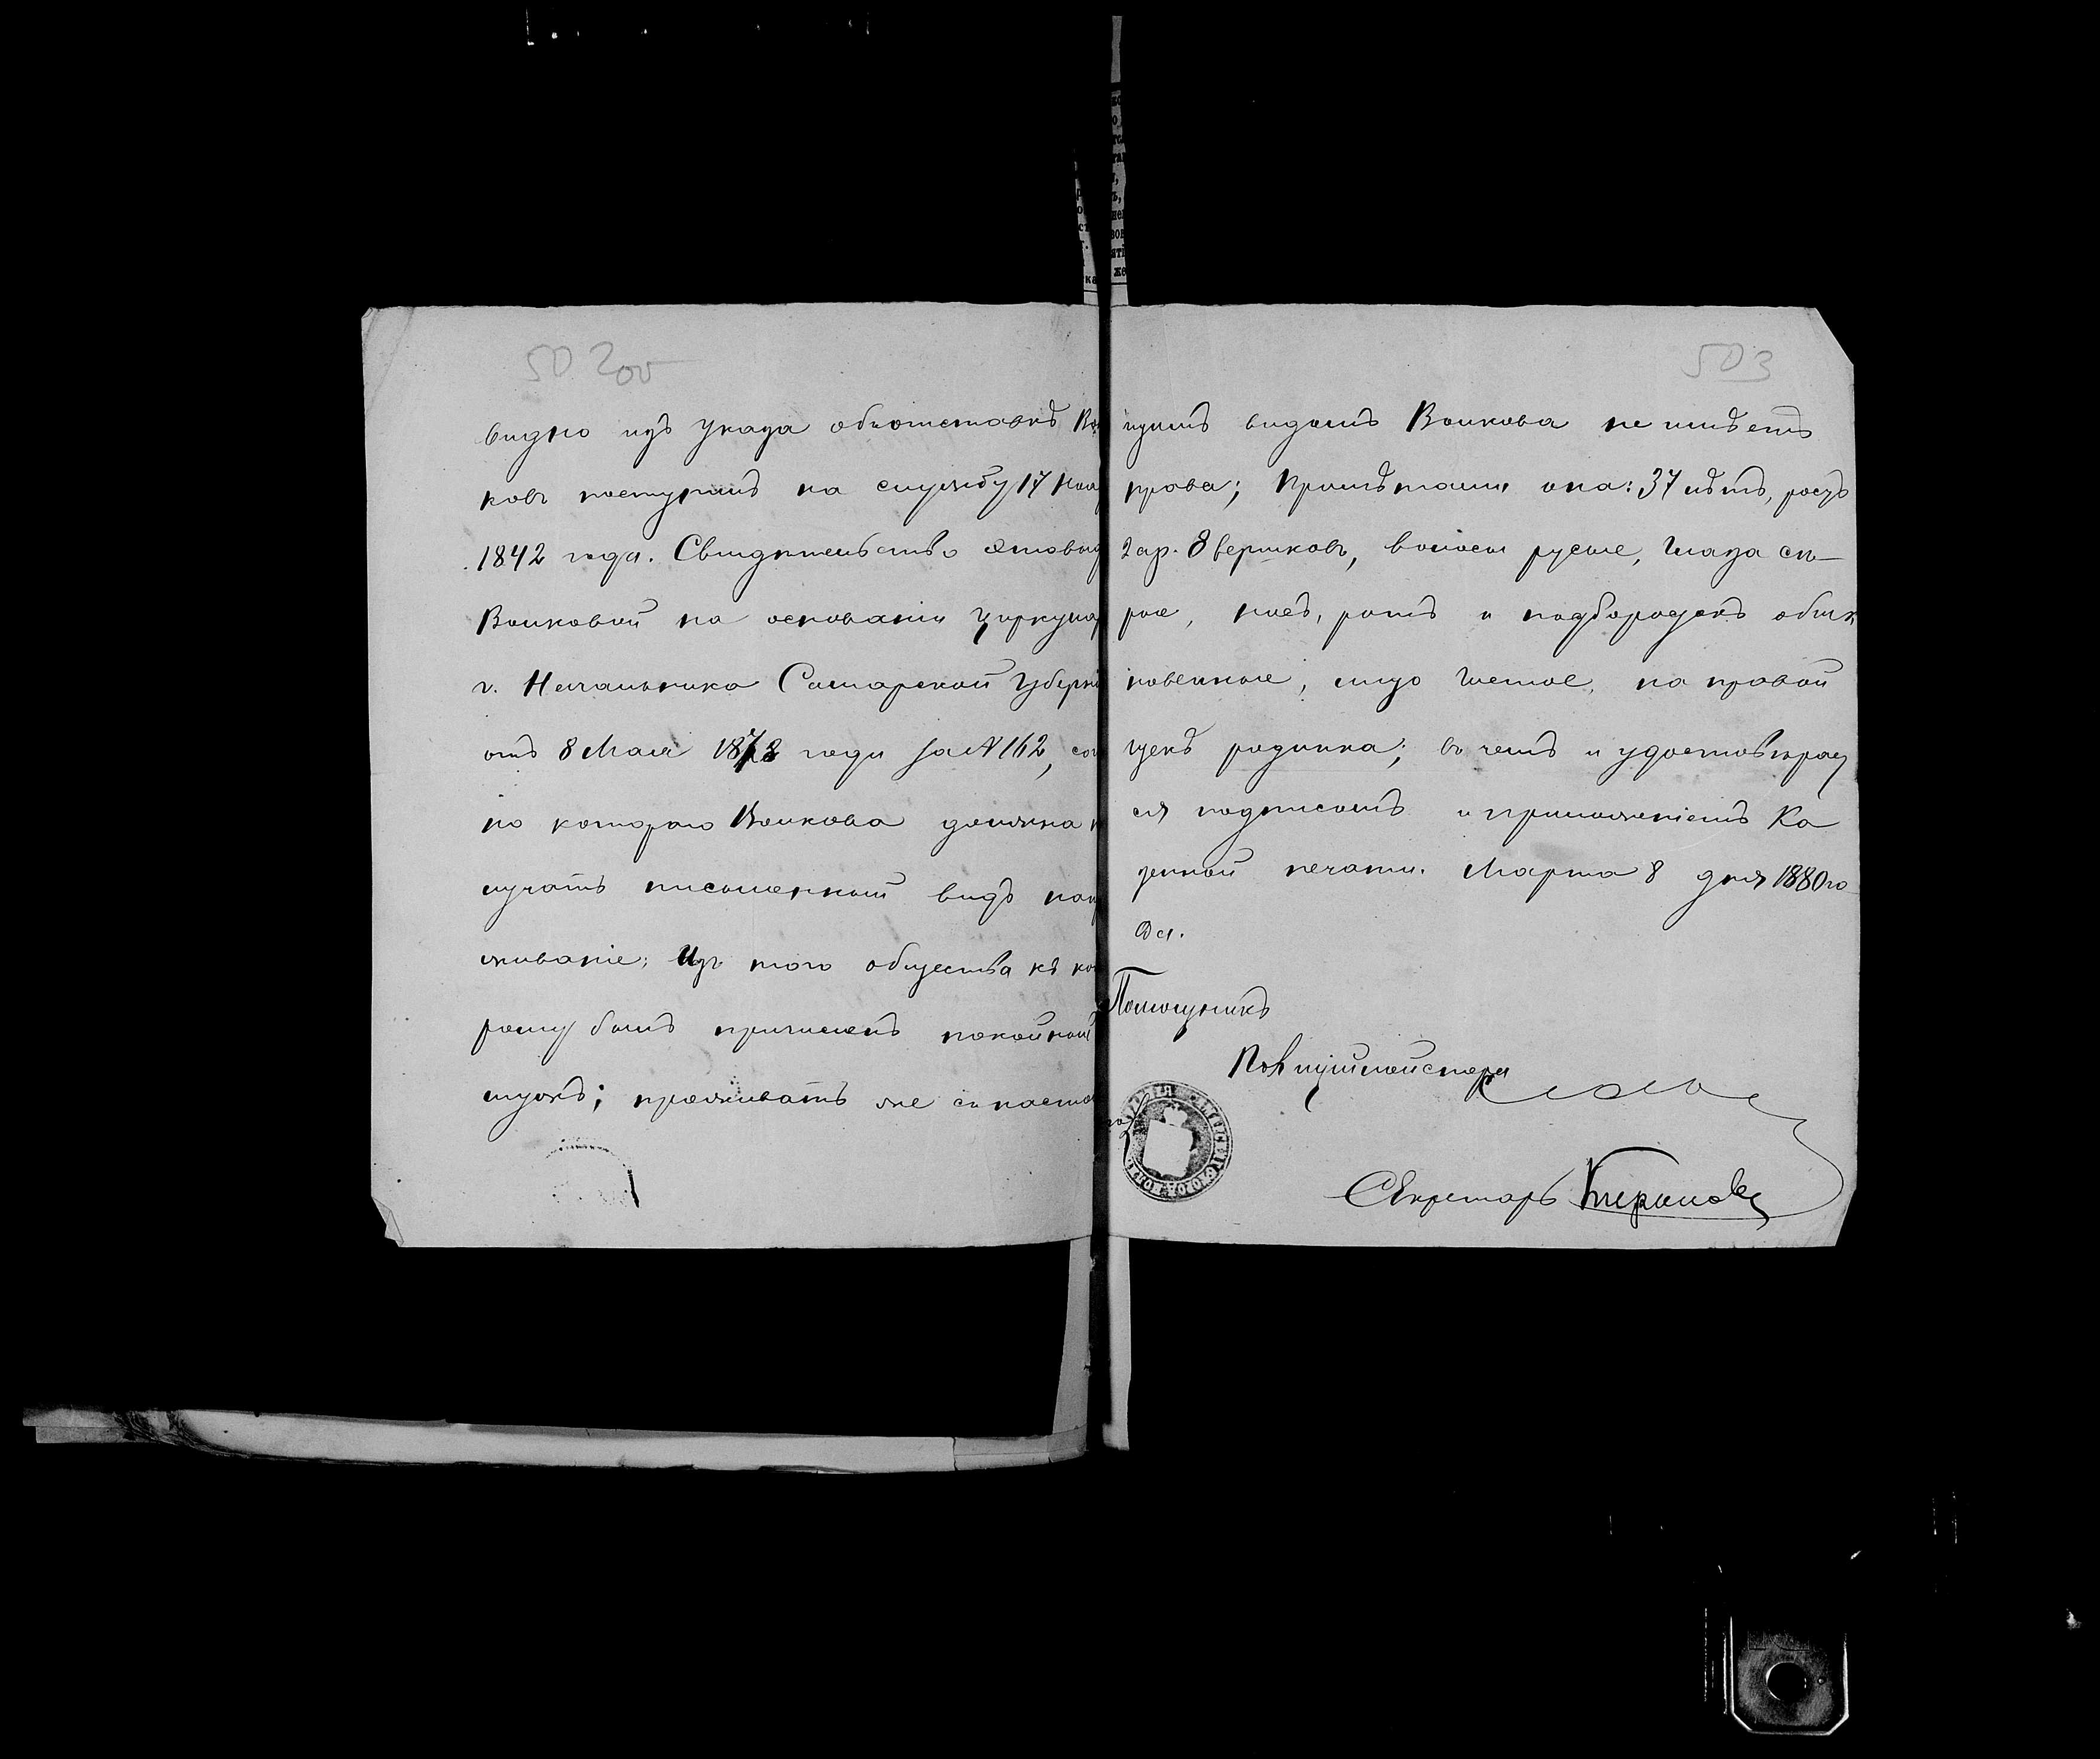 502 об
видно изъ Указа объ отставкѣ Во
ковъ поступилъ на службу 17 Ноя
1842 года. Свидѣтельство это выд
Волковой на основаніи Циркуляр
г. Начальника Самарской Губерні
отъ 8 Мая 1878 года за № 162, со
но котораго Волкова должна п
лучать письменный видъ на п
живаніе; Изъ того общества къ ко
рому былъ причисленъ покойный
мужъ; проживать же съ насто
503
щимъ видомъ Волкова не имѣетъ
права; Примѣтами она: 37 лѣтъ, ростъ
2 ар. 8 вершковъ, волосы русые, глаза сѣ-
рые, носъ, ротъ и подбородокъ обык
новенные, лицо чистое, на правой
щекѣ родинка; въ чемъ и удостовѣряет
ся подписомъ и приложеніемъ Ка
зенной печати. Марта 8 дня 1880 го
да.
Помощникъ
Полиціймейстера
Секретарь